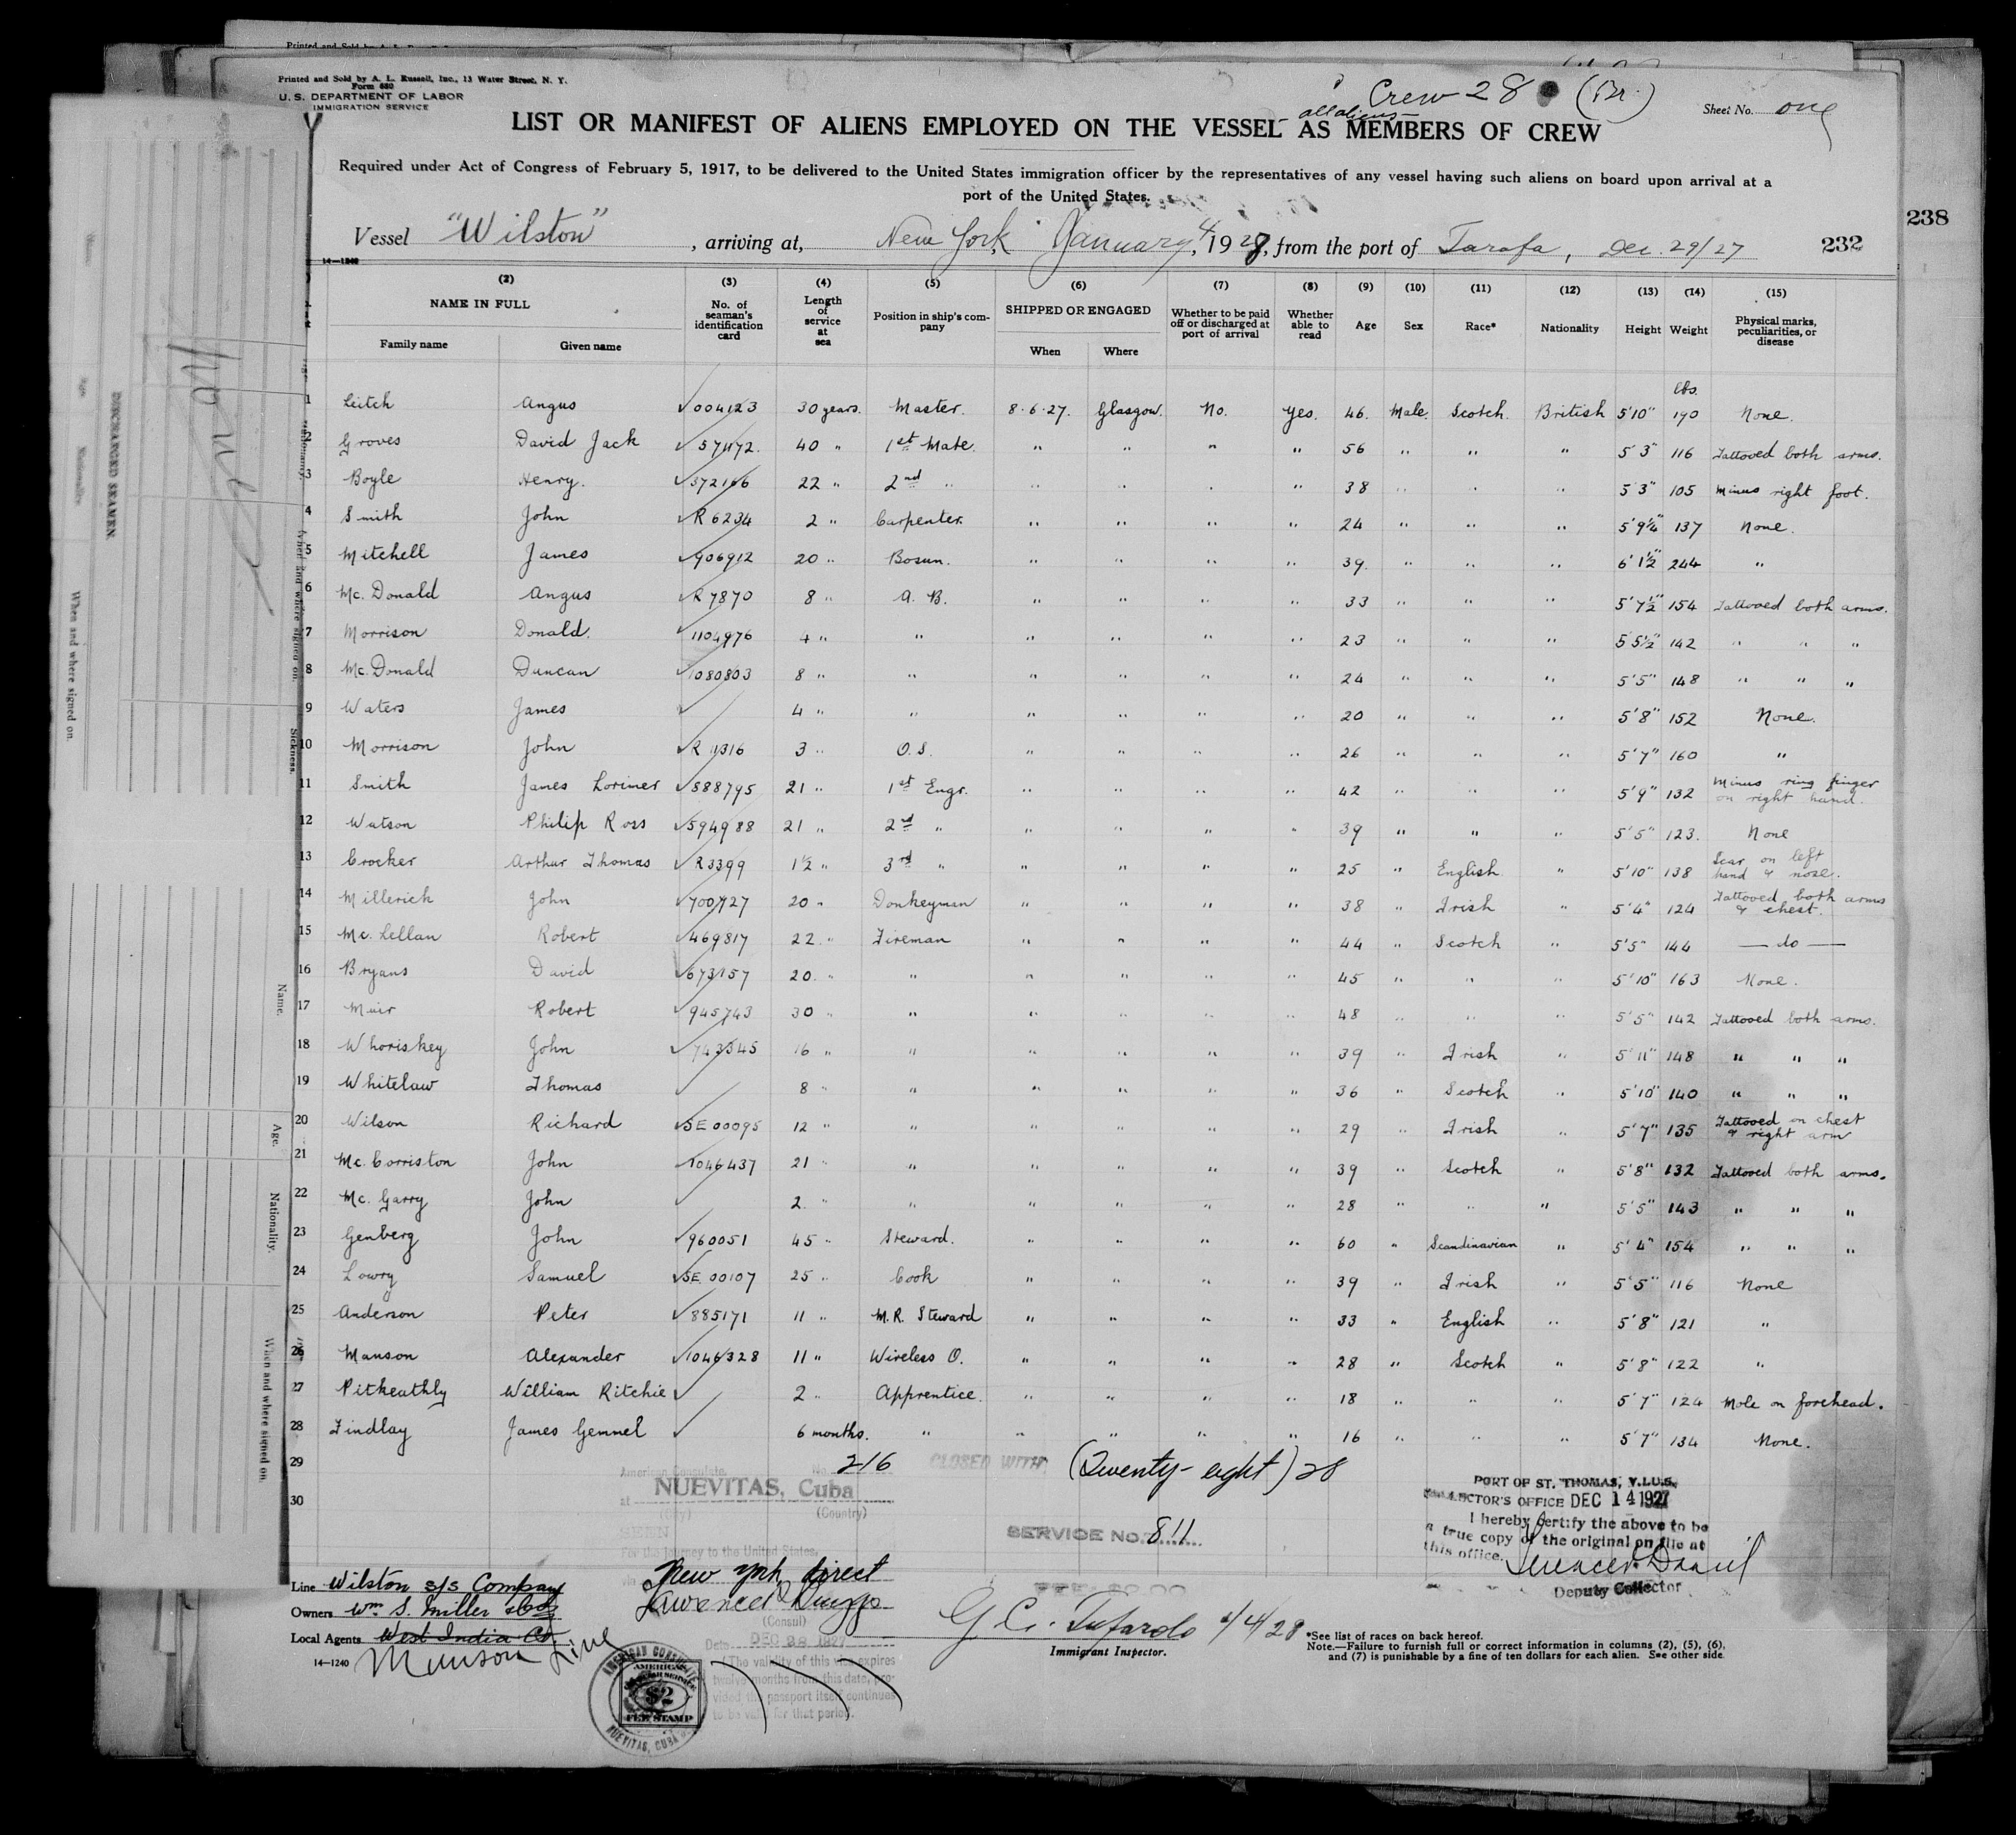 Printed and Sold by A. L. Russell, Inc., 13 Water Street, N. Y.
Form 680
U. S. DEPARTMENT OF LABOR
IMMIGRATION SERVICE
Crew 28 (Br.)
all aliens
Sheet No. one
LIST OR MANIFEST OF ALIENS EMPLOYED ON THE VESSEL AS MEMBERS OF CREW
Required under Act of Congress of February 5, 1917, to be delivered to the United States immigration officer by the representatives of any vessel having such aliens on board upon arrival at a
port of the United States.
238
Vessel "Wilston", arriving at, New York January 4, 1928, from the port of Tarafa, Dec. 29/27 232
14—1240
(2) (3) (4) (5) (6) (7) (8) (9) (10) (11) (12) (13) (14) (15)
NAME IN FULL No. of seaman's identification card Length of service at sea Position in ship's company SHIPPED OR ENGAGED Whether to be paid off or discharged at port of arrival Whether able to read Age Sex Race* Nationality Height Weight Physical marks, peculiarities, or disease
Family name Given name When Where
lbs.
1 Leitch Angus 004123 30 years. Master. 8.6.27. Glasgow. No. Yes. 46. Male. Scotch. British 5'10" 190 None.
2 Groves David Jack 57472. 40 " 1st Mate. " " " " 56 " " " 5'3" 116 Tattooed both arms.
3 Boyle Henry. 572166 22 " 2nd " " " " " 38 " " " 5'3" 105 Minus right foot.
4 Smith John R 6234 2 " Carpenter. " " " " 24 " " " 5'9¼" 137 None.
5 Mitchell James 906912 20 " Bosun. " " " " 39. " " " 6'1½" 244 "
6 Mc. Donald Angus R 7870 8 " A. B. " " " " 33 " " " 5'7½" 154 Tattooed both arms.
7 Morrison Donald. 1104976 4 " " " " " " 23 " " " 5'5½" 142 " " "
8 Mc. Donald Duncan 1080803 8 " " " " " " 24 " " " 5'5" 148 " " "
9 Waters James 4 " " " " " " 20 " " " 5'8" 152 None.
10 Morrison John R 1316 3 " O.S. " " " " 26 " " " 5'7" 160 "
11 Smith James Lorimer 588795 21 " 1st Engr. " " " " 42 " " " 5'9" 132 Minus ring finger on right hand.
12 Watson Philip Ross 594988 21 " 2nd " " " " " 39 " " " 5'5" 123. None
13 Crocker Arthur Thomas R 3399 1½ " 3rd " " " " " 25 " English " 5'10" 138 Scar on left hand & nose.
14 Millerick John 700727 20 " Donkeyman " " " " 38 " Irish " 5'4" 124 Tattooed both arms & chest.
15 Mc. Lellan Robert 469817 22 " Fireman " " " " 44 " Scotch " 5'5" 144 — do —
16 Bryans David 673157 20. " " " " " " 45 " " " 5'10" 163 None.
17 Muir Robert 945743 30 " " " " " " 48 " " " 5'5" 142 Tattooed both arms.
18 Whoriskey John 743545 16 " " " " " " 39 " Irish " 5'11" 148 " " "
19 Whitelaw Thomas 8 " " " " " " 36 " Scotch " 5'10" 140 " " "
20 Wilson Richard SE 00095 12 " " " " " " 29 " Irish " 5'7" 135 Tattooed on chest & right arm
21 Mc. Corriston John 1046437 21 " " " " " " 39 " Scotch " 5'8" 132 Tattooed both arms.
22 Mc. Garry John 2. " " " " " " 28 " " " 5'5" 143 " " "
23 Genberg John 960051 45 " Steward. " " " " 60 " Scandinavian " 5'4" 154 " " "
24 Lowry Samuel SE 00107 25 " Cook " " " " 39 " Irish " 5'5" 116 None
25 Anderson Peter 885171 11 " M.R. Steward " " " " 33 " English " 5'8" 121 "
26 Manson Alexander 1046328 11 " Wireless O. " " " " 28 " Scotch " 5'8" 122 "
27 Pitkeathly William Ritchie 2 " Apprentice. " " " " 18 " " " 5'7" 124 Mole on forehead.
28 Findlay James Gemmel 6 months. " " " " " 16 " " " 5'7" 134 None.
29
30
American Consulate, No. 216
CLOSED WITH (Twenty-eight) 28
at NUEVITAS, Cuba
(City) (Country)
SEEN
For the journey to the United States,
via New York direct
(Consul)
Date DEC 28 1927
(The validity of this visa expires
twelve months from this date, pro-
vided the passport itself continues
to be valid for that period.
SERVICE NO. 811
PORT OF ST. THOMAS, V.I.U.S.
COLLECTOR'S OFFICE DEC 14 1927
I hereby certify the above to be
a true copy of the original on file at
this office.
Deputy Collector
Line Wilston S/S Company
Owners Wm. S. Miller
Local Agents West India Co.
Munson Line
14—1240
AMERICAN CONSULATE
AMERICAN
$2
FEE STAMP
NUEVITAS, CUBA
G. C. Tufarolo 1/4/28
Immigrant Inspector.
*See list of races on back hereof.
Note.—Failure to furnish full or correct information in columns (2), (5), (6),
and (7) is punishable by a fine of ten dollars for each alien. See other side.
DISCHARGED SEAMEN.
When and where signed on.
Nationality.
Sickness.
Name.
Age.
Nationality.
When and where signed on.